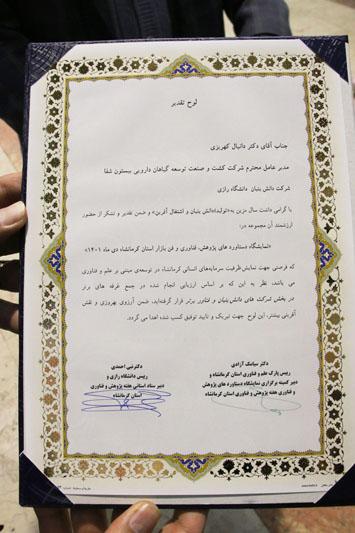 لوح تقدیر
جناب آقای دکتر دانیال کهریزی
مدیر عامل محترم شرکت کشت و صنعت توسعه گیاهان دارویی بیستون شفا
شرکت دانش بنیان دانشگاه رازی
با گرامی داشت سال مزین به «تولید؛ دانش بنیان و اشتغال آفرین» و ضمن تقدیر و تشکر از حضور
ارزشمند آن مجموعه در:
«نمایشگاه دستاورد های پژوهش، فناوری و فن بازار استان کرمانشاه دی ماه ۱۴۰۱»
که فرصتی جهت نمایش ظرفیت سرمایه‌های انسانی کرمانشاه، در توسعه‌ی مبتنی بر علم و فناوری
می باشد، نظر به این که بر اساس ارزیابی انجام شده در جمع غرفه های برتر
در بخش شرکت های دانش بنیان و فناور برتر قرار گرفته‌اید، ضمن آرزوی بهروزی و نقش
آفرینی بیشتر، این لوح جهت تبریک و تایید توفیق کسب شده اهدا می گردد.
دکتر سیامک آزادی
رییس پارک علم و فناوری استان کرمانشاه و
دبیر کمیته برگزاری نمایشگاه دستاورد های پژوهش
و فناوری هفته پژوهش و فناوری استان کرمانشاه
دکتر نبی احمدی
رییس دانشگاه رازی و
دبیر ستاد استانی هفته پژوهش و فناوری
استان کرمانشاه